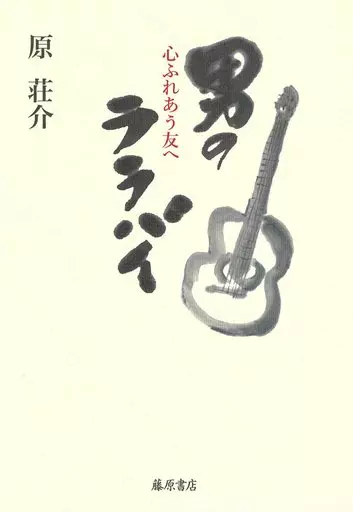 心ふれあう友へ
男の
ララバイ
原 荘介
藤原書店